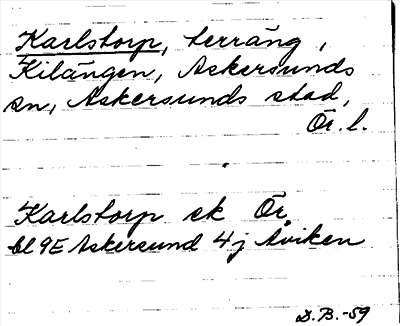 Karlstorp, terräng,
Kilängen, Askersunds
sn, Askersunds stad,
Ör. l.
Karlstorp ek Ör.
bl 9E Askersund 4j Åviken
D.B.-59